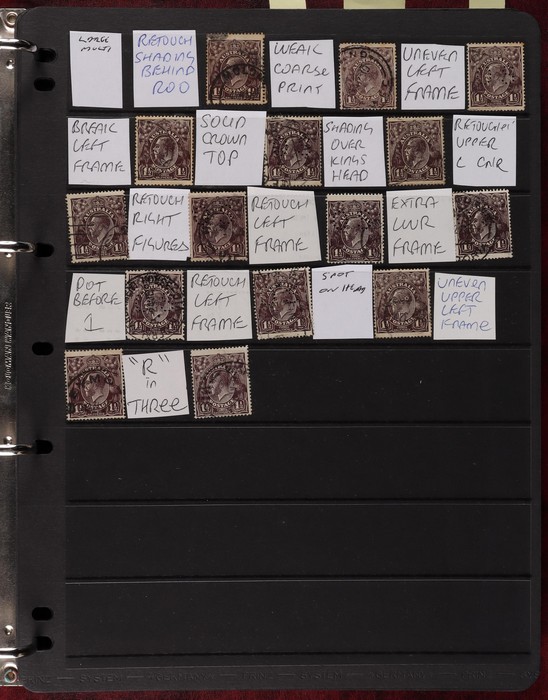 LARGE
MULTI
RETOUCH
SHADING
BEHIND
ROO
WEAK
COARSE
PRINT
UNEVEN
LEFT
FRAME
BREAK
LEFT
FRAME
SOLID
CROWN
TOP
SHADING
OVER
KINGS
HEAD
UPPER
L CNR
RETOUCH
RIGHT
FIGURES
RETOUCH
LEFT
FRAME
EXTRA
LWR
FRAME
DOT
BEFORE
1
RETOUCH
LEFT
FRAME
SPOT
ON HEAD
UNEVEN
UPPER
LEFT
FRAME
"R"
in
THREE